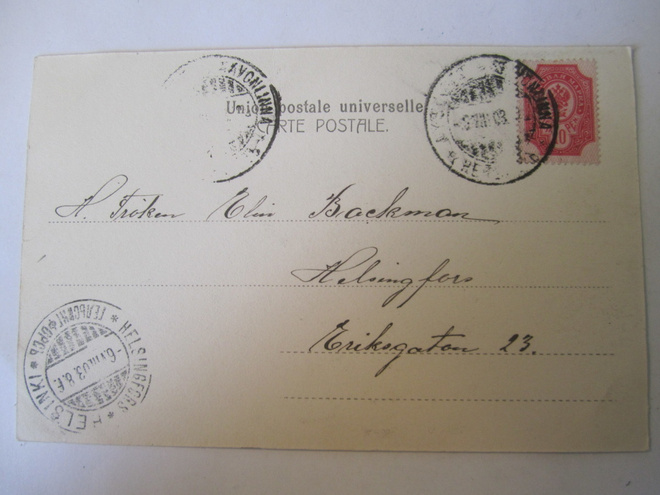 Union postale universelle
CARTE POSTALE.
H. Fröken Elin Backman
Helsingfors
Eriksgatan 23.
HELSINGFORS * HELSINKI * ГЕЛЬСИНГФОРСЪ *